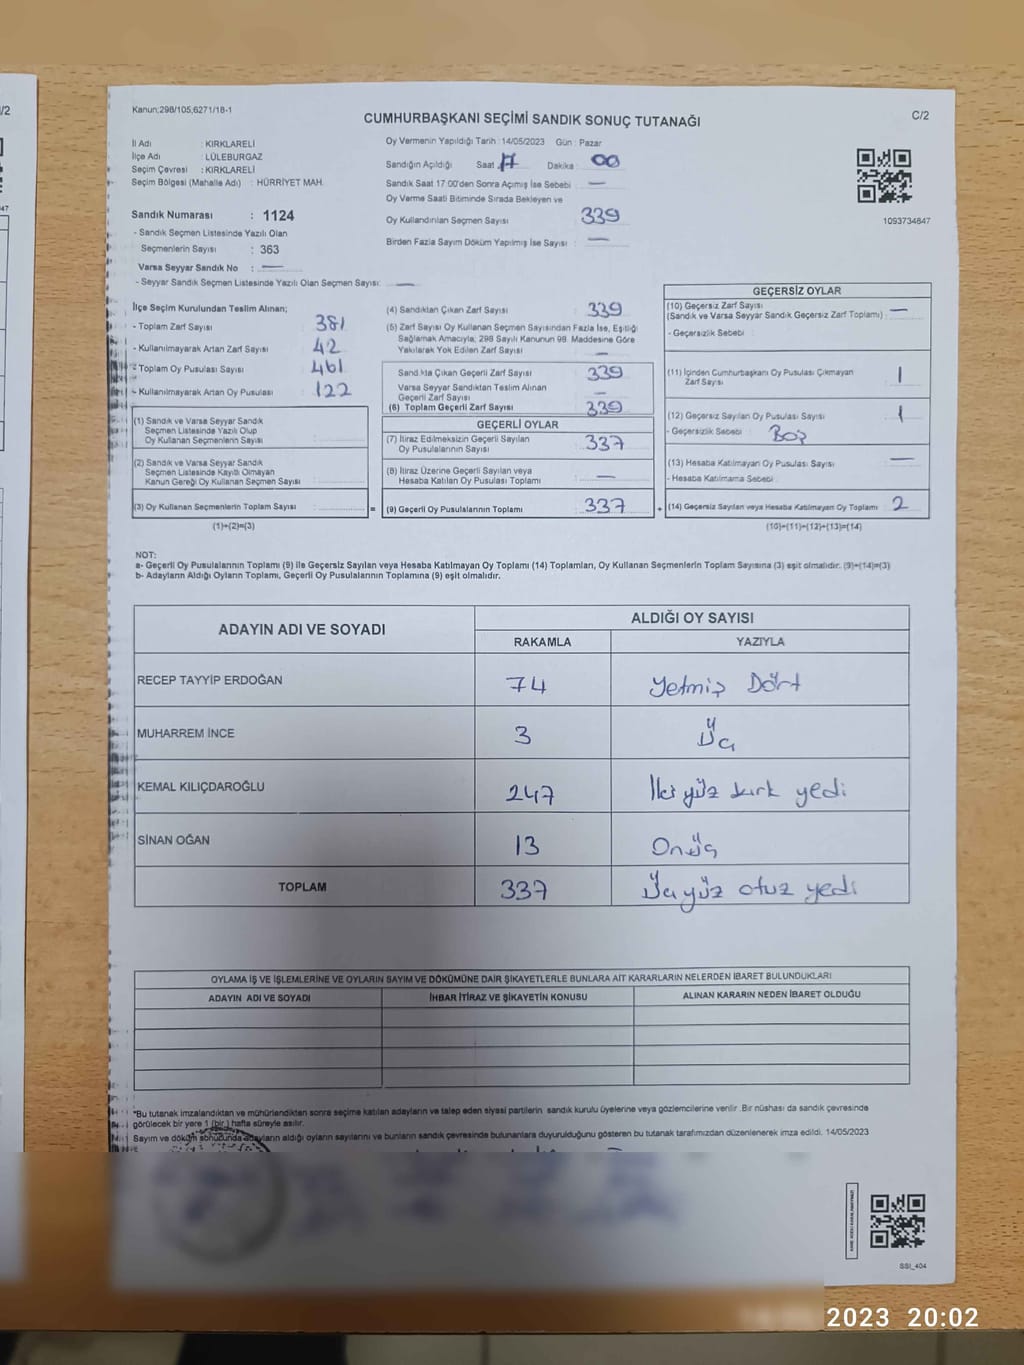 /2
47
Kanun:298/105,6271/18-1
C/2
CUMHURBAŞKANI SEÇİMİ SANDIK SONUÇ TUTANAĞI
İl Adı : KIRKLARELİ
İlçe Adı : LÜLEBURGAZ
Seçim Çevresi : KIRKLARELİ
Seçim Bölgesi (Mahalle Adı) : HÜRRİYET MAH.
Sandık Numarası : 1124
- Sandık Seçmen Listesinde Yazılı Olan
Seçmenlerin Sayısı : 363
Varsa Seyyar Sandık No : —
- Seyyar Sandık Seçmen Listesinde Yazılı Olan Seçmen Sayısı: —
Oy Vermenin Yapıldığı Tarih : 14/05/2023 Gün : Pazar
Sandığın Açıldığı Saat 17 Dakika : 00
Sandık Saat 17:00'den Sonra Açımış İse Sebebi : —
Oy Verme Saati Bitiminde Sırada Bekleyen ve
Oy Kullandırılan Seçmen Sayısı : 339
Birden Fazla Sayım Döküm Yapılmış İse Sayısı : —
1093734847
İlçe Seçim Kurulundan Teslim Alınan;
- Toplam Zarf Sayısı : 381
- Kullanılmayarak Artan Zarf Sayısı : 42
- Toplam Oy Pusulası Sayısı : 461
- Kullanılmayarak Artan Oy Pusulası : 122
(1) Sandık ve Varsa Seyyar Sandık
Seçmen Listesinde Yazılı Olup
Oy Kullanan Seçmenlerin Sayısı :
(2) Sandık ve Varsa Seyyar Sandık
Seçmen Listesinde Kayıtlı Olmayan
Kanun Gereği Oy Kullanan Seçmen Sayısı :
(3) Oy Kullanan Seçmenlerin Toplam Sayısı : =
(1)+(2)=(3)
(4) Sandıktan Çıkan Zarf Sayısı : 339
(5) Zarf Sayısı Oy Kullanan Seçmen Sayısından Fazla İse, Eşitliği
Sağlamak Amacıyla, 298 Sayılı Kanunun 98. Maddesine Göre
Yakılarak Yok Edilen Zarf Sayısı : —
Sandıkta Çıkan Geçerli Zarf Sayısı : 339
Varsa Seyyar Sandıktan Teslim Alınan
Geçerli Zarf Sayısı : —
(6) Toplam Geçerli Zarf Sayısı : 339
GEÇERLİ OYLAR
(7) İtiraz Edilmeksizin Geçerli Sayılan
Oy Pusulalarının Sayısı : 337
(8) İtiraz Üzerine Geçerli Sayılan veya
Hesaba Katılan Oy Pusulası Toplamı : —
(9) Geçerli Oy Pusulalarının Toplamı : 337 +
GEÇERSİZ OYLAR
(10) Geçersiz Zarf Sayısı
(Sandık ve Varsa Seyyar Sandık Geçersiz Zarf Toplamı) : —
- Geçersizlik Sebebi :
(11) İçinden Cumhurbaşkanı Oy Pusulası Çıkmayan
Zarf Sayısı : 1
(12) Geçersiz Sayılan Oy Pusulası Sayısı : 1
- Geçersizlik Sebebi : Boş
(13) Hesaba Katılmayan Oy Pusulası Sayısı : —
- Hesaba Katılmama Sebebi :
(14) Geçersiz Sayılan veya Hesaba Katılmayan Oy Toplamı : 2
(10)+(11)+(12)+(13)=(14)
NOT:
a- Geçerli Oy Pusulalarının Toplamı (9) ile Geçersiz Sayılan veya Hesaba Katılmayan Oy Toplamı (14) Toplamları, Oy Kullanan Seçmenlerin Toplam Sayısına (3) eşit olmalıdır. (9)+(14)=(3)
b- Adayların Aldığı Oyların Toplamı, Geçerli Oy Pusulalarının Toplamına (9) eşit olmalıdır.
ADAYIN ADI VE SOYADI ALDIĞI OY SAYISI
RAKAMLA YAZIYLA
RECEP TAYYİP ERDOĞAN 74 Yetmiş Dört
MUHARREM İNCE 3 Üç
KEMAL KILIÇDAROĞLU 247 İki yüz kırk yedi
SİNAN OĞAN 13 Onüç
TOPLAM 337 Üç yüz otuz yedi
OYLAMA İŞ VE İŞLEMLERİNE VE OYLARIN SAYIM VE DÖKÜMÜNE DAİR ŞİKAYETLERLE BUNLARA AİT KARARLARIN NELERDEN İBARET BULUNDUKLARI
ADAYIN ADI VE SOYADI İHBAR İTİRAZ VE ŞİKAYETİN KONUSU ALINAN KARARIN NEDEN İBARET OLDUĞU
*Bu tutanak imzalandıktan ve mühürlendikten sonra seçime katılan adayların ve talep eden siyasi partilerin sandık kurulu üyelerine veya gözlemcilerine verilir. Bir nüshası da sandık çevresinde
görülecek bir yere 1 (bir) hafta süreyle asılır.
Sayım ve döküm sonucunda adayların aldığı oyların sayılarını ve bunların sandık çevresinde bulunanlara duyurulduğunu gösteren bu tutanak tarafımızdan düzenlenerek imza edildi. 14/05/2023
SSI_404
2023 20:02